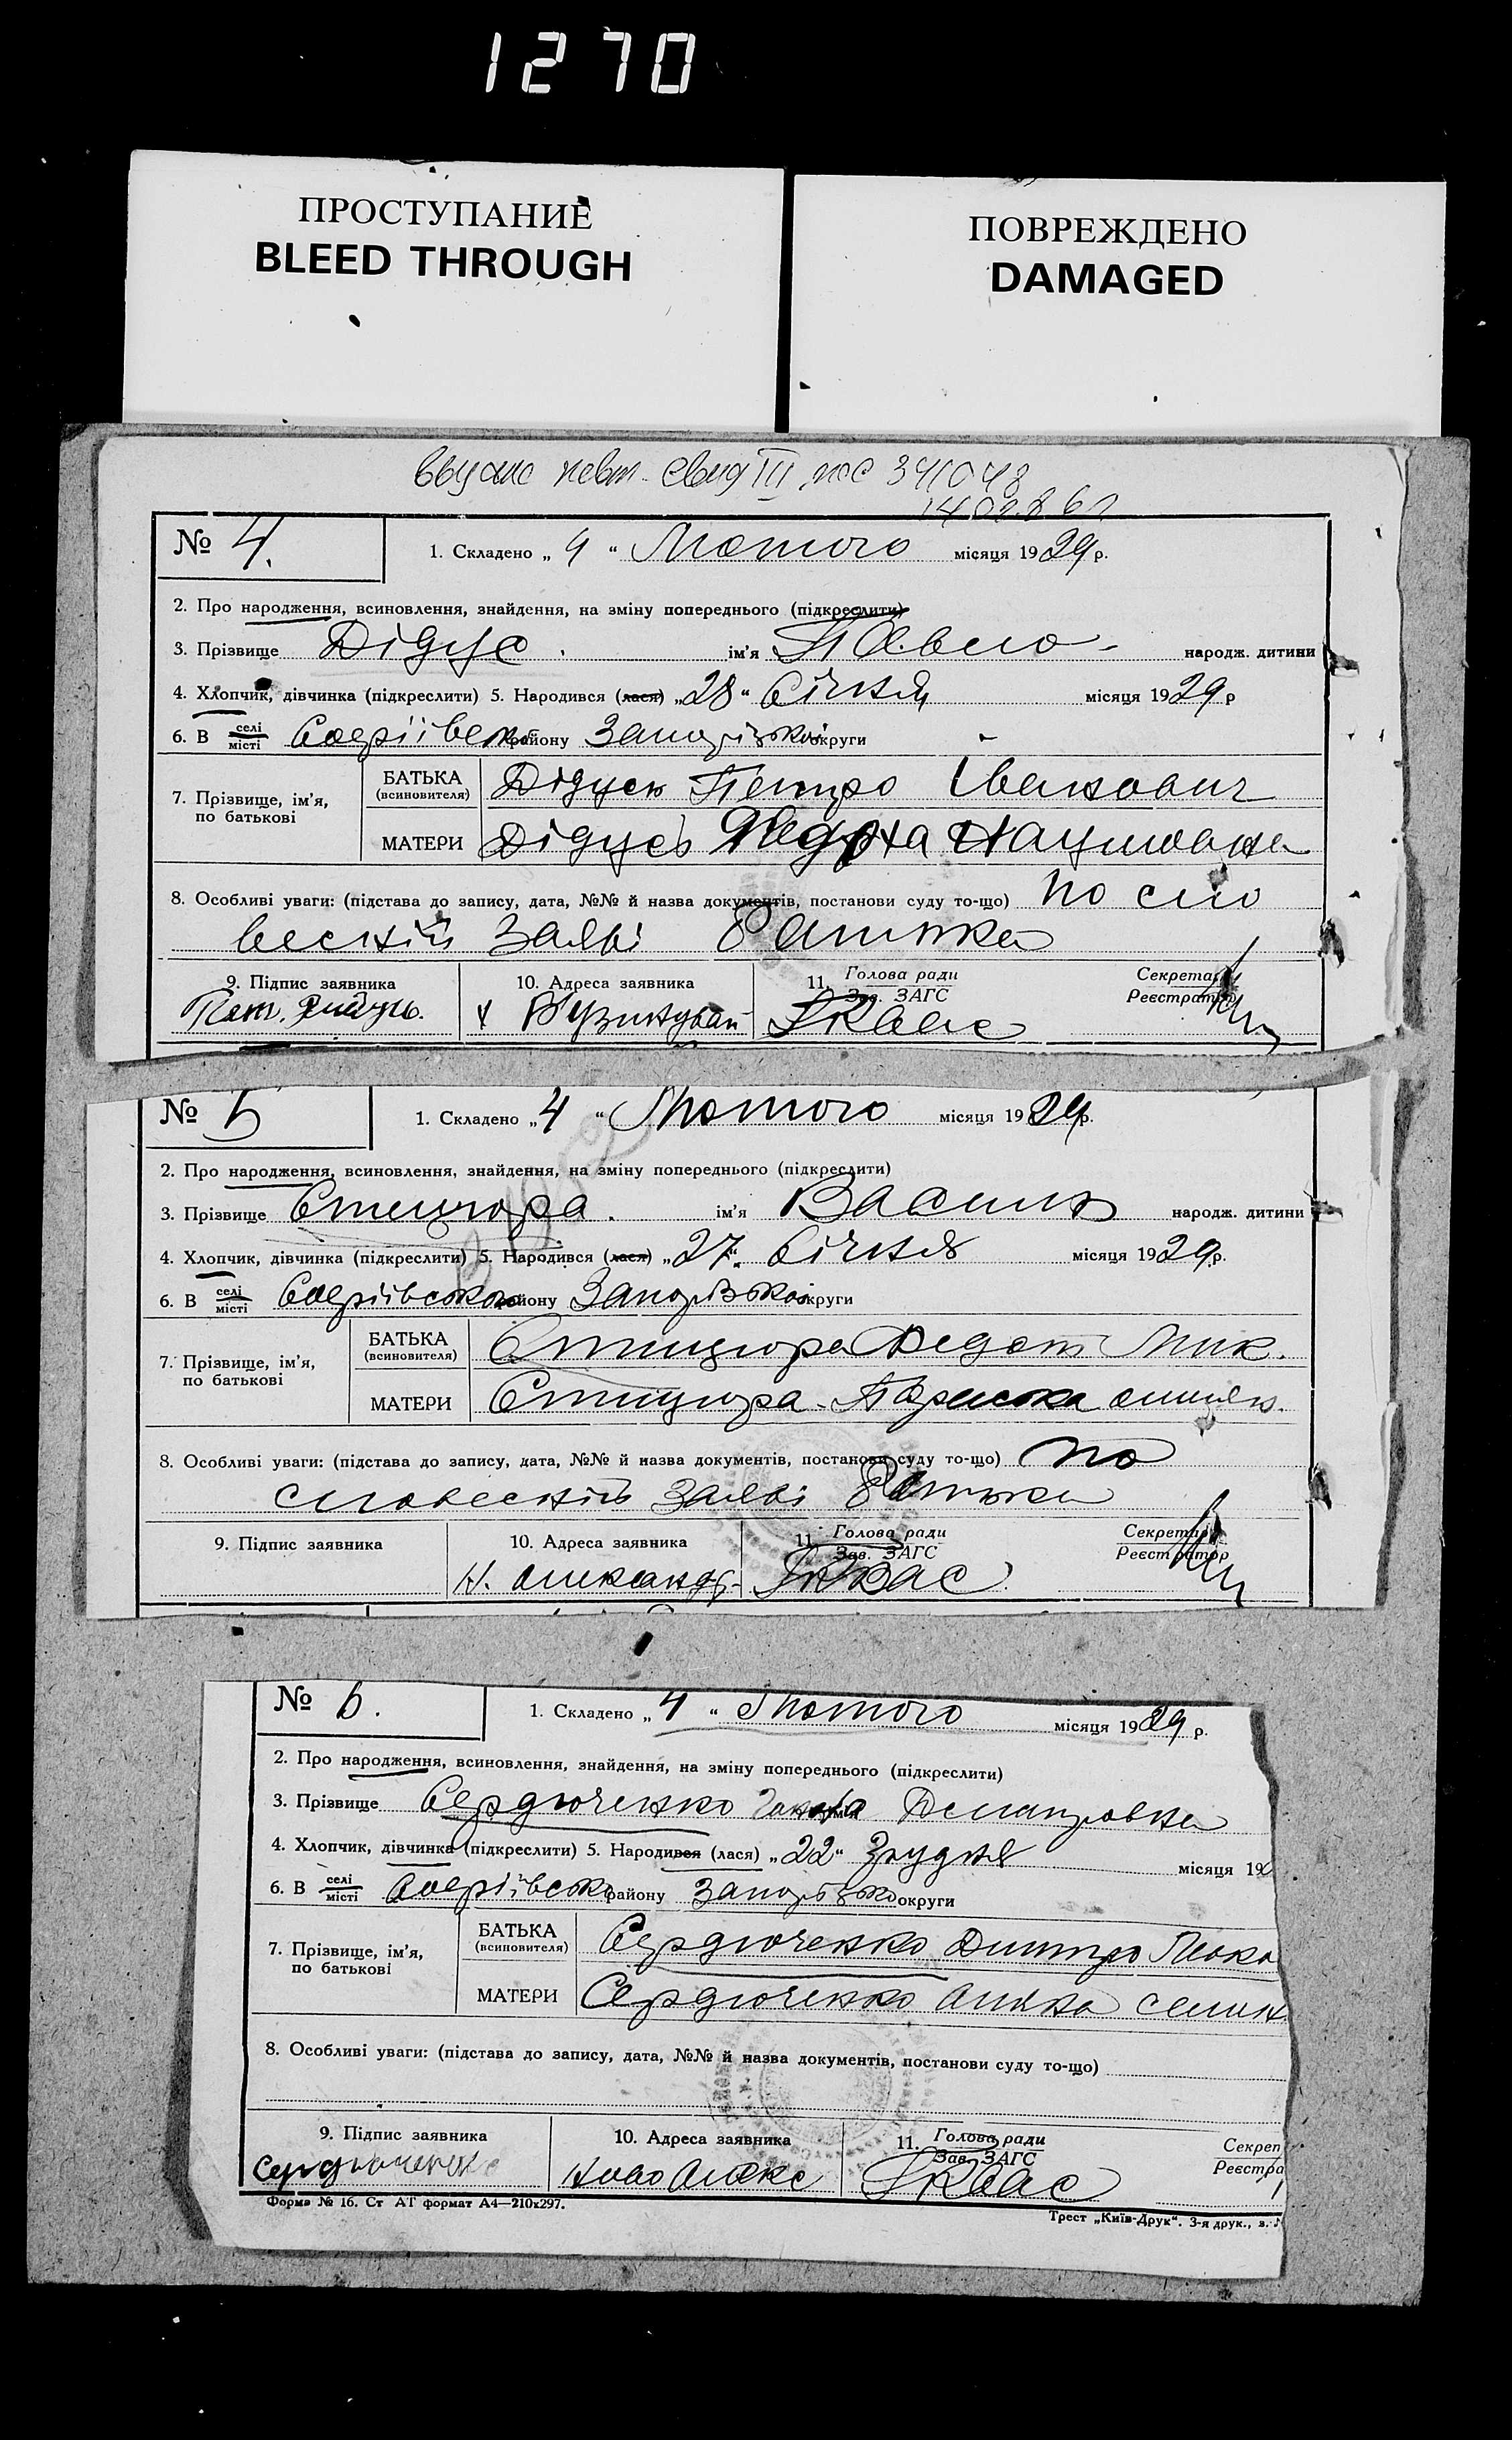 1270
ПРОСТУПАНИЕ
BLEED THROUGH
ПОВРЕЖДЕНО
DAMAGED
№ 4.
1. Складено „4“ Лютого місяця 1929 р.
2. Про народження, всиновлення, знайдення, на зміну попереднього (підкреслити)
3. Прізвище Дідус. ім'я Павло народж. дитини
4. Хлопчик, дівчинка (підкреслити) 5. Народився (лася) „28“ Січня місяця 1929 р
6. В селі місті району Запорізької округи
7. Прізвище, ім'я, по батькові
БАТЬКА (всиновителя) Дідусь Петро Іванович
МАТЕРИ Дідусь Наумовна
8. Особливі уваги: (підстава до запису, дата, №№ й назва документів, постанови суду то-що) по сло
весній заяві батька
9. Підпис заявника 10. Адреса заявника 11. Голова ради Зав. ЗАГС Секретар Реєстратор
№ 5
1. Складено „4“ Лютого місяця 1929 р.
2. Про народження, всиновлення, знайдення, на зміну попереднього (підкреслити)
3. Прізвище Стецюра. ім'я Василь народж. дитини
4. Хлопчик, дівчинка (підкреслити) 5. Народився (лася) „27“ Січня місяця 1929 р.
6. В селі місті району Запорізької округи
7. Прізвище, ім'я, по батькові
БАТЬКА (всиновителя) Стицюра Федот Мик.
МАТЕРИ Стицюра Параска
8. Особливі уваги: (підстава до запису, дата, №№ й назва документів, постанови суду то-що) по
словесній заяві батька
9. Підпис заявника 10. Адреса заявника 11. Голова ради Зав. ЗАГС Секретар Реєстратор
Н. Олександр.
№ 6.
1. Складено „4“ Лютого місяця 1929 р.
2. Про народження, всиновлення, знайдення, на зміну попереднього (підкреслити)
3. Прізвище Сердюченко
4. Хлопчик, дівчинка (підкреслити) 5. Народився (лася) „22“ Грудня місяця 19
6. В селі місті району Запорізької округи
7. Прізвище, ім'я, по батькові
БАТЬКА (всиновителя) Сердюченко Дмитро
МАТЕРИ Сердюченко
8. Особливі уваги: (підстава до запису, дата, №№ й назва документів, постанови суду то-що)
9. Підпис заявника 10. Адреса заявника 11. Голова ради Зав. ЗАГС Секрет Реєстра
Сердюченко Ново Олекс
Форма № 16. Ст АГ формат А4—210x297.
Трест „Київ-Друк“. 3-я друк., з.